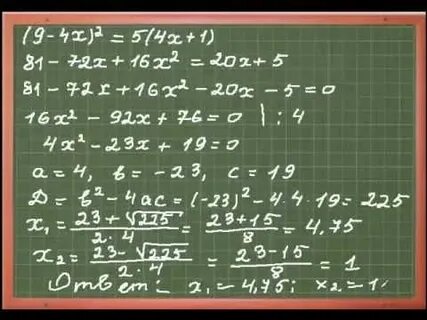 (9-4x)² = 5(4x+1)
81 - 72x + 16x² = 20x + 5
81 - 72x + 16x² - 20x - 5 = 0
16x² - 92x + 76 = 0 | : 4
4x² - 23x + 19 = 0
a = 4, b = -23, c = 19
D = b² - 4ac = (-23)² - 4·4·19 = 225
x₁ = (23+√225)/(2·4) = (23+15)/8 = 4,75
x₂ = (23-√225)/(2·4) = (23-15)/8 = 1
Ответ: x₁ = 4,75; x₂ = 1.